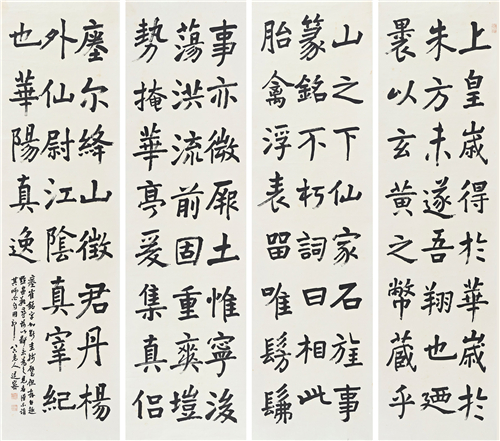 上皇歲得於華歲於
朱方未遂吾翔也廼
裹以玄黃之幣藏乎
山之下仙家石旌事
篆銘不朽詞曰相此
胎禽浮表留唯髣髴
事亦微厥土惟寧後
蕩洪流前固重爽塏
勢掩華亭爰集真侶
瘞尔絳山徵君丹楊
外仙尉江陰真宰紀
也華陽真逸